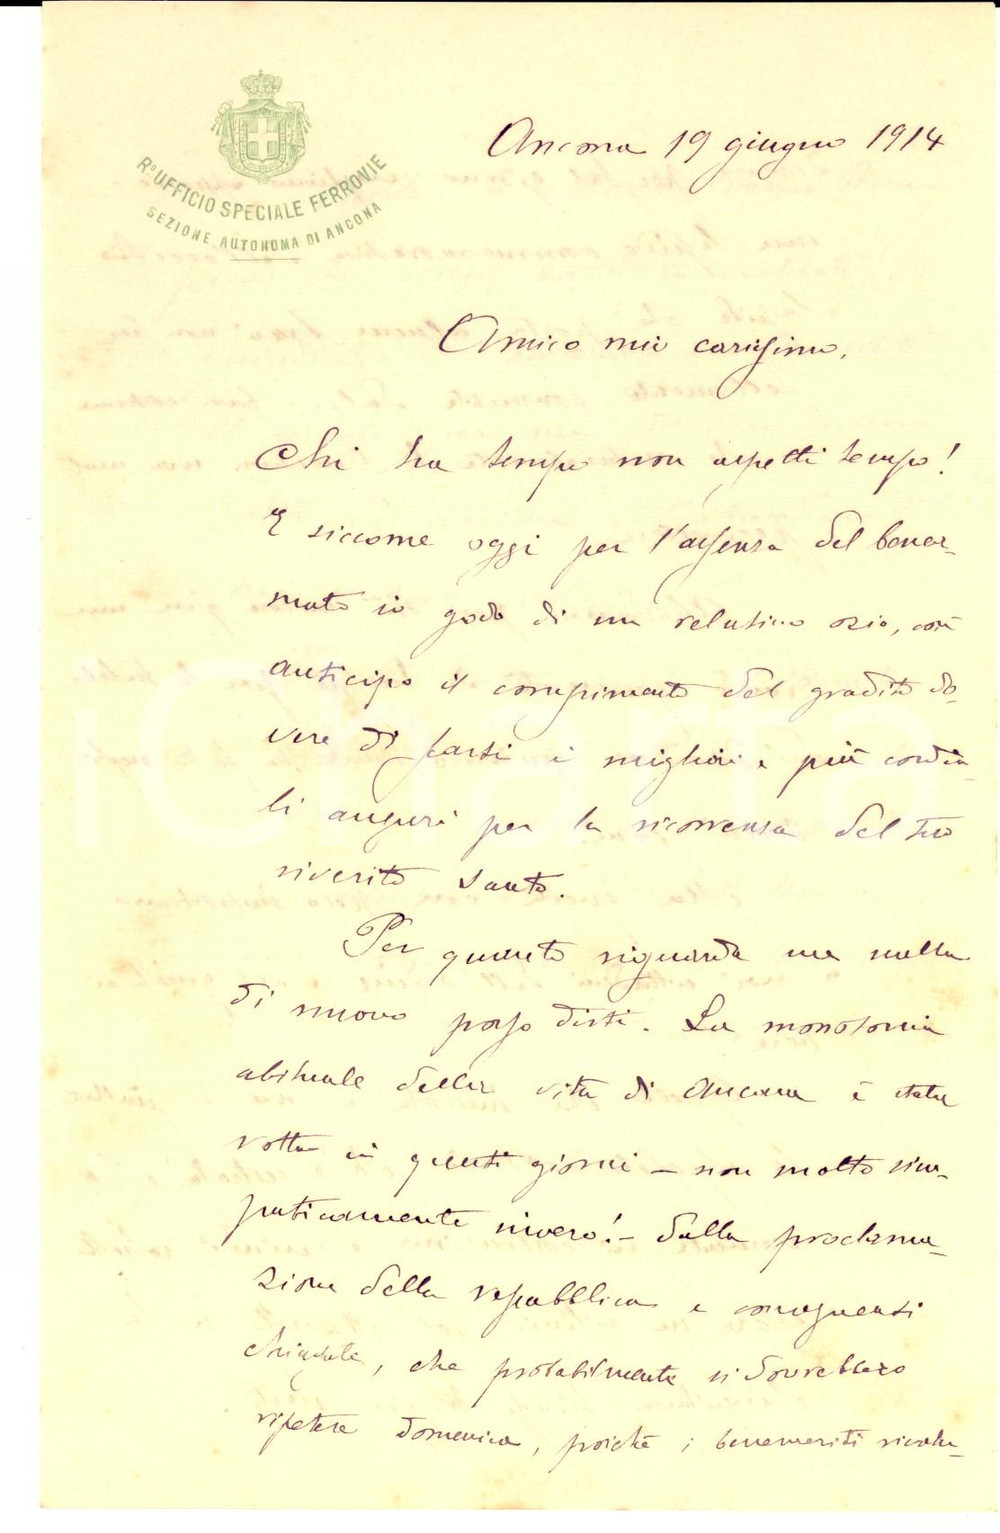 Rº UFFICIO SPECIALE FERROVIE
SEZIONE AUTONOMA DI ANCONA
Ancona 19 giugno 1914
Amico mio carissimo,
Chi ha tempo non aspetti tempo!
E siccome oggi per l'assenza del bener-
mato io godo di un relativo ozio, così
anticipo il compimento del gradito do-
vere di farti i migliori e più cordia-
li auguri per la ricorrenza del tuo
riverito santo.
Per quanto riguarda me nulla
di nuovo posso dirti. La monotonia
abituale della vita di Ancona è stata
rotta in questi giorni - non molto sim-
paticamente invero! - dalla proclama-
zione della repubblica e conseguenti
chiassate, che probabilmente si dovrebbero
ripetere domenica, poichè i benemeriti rivolu-